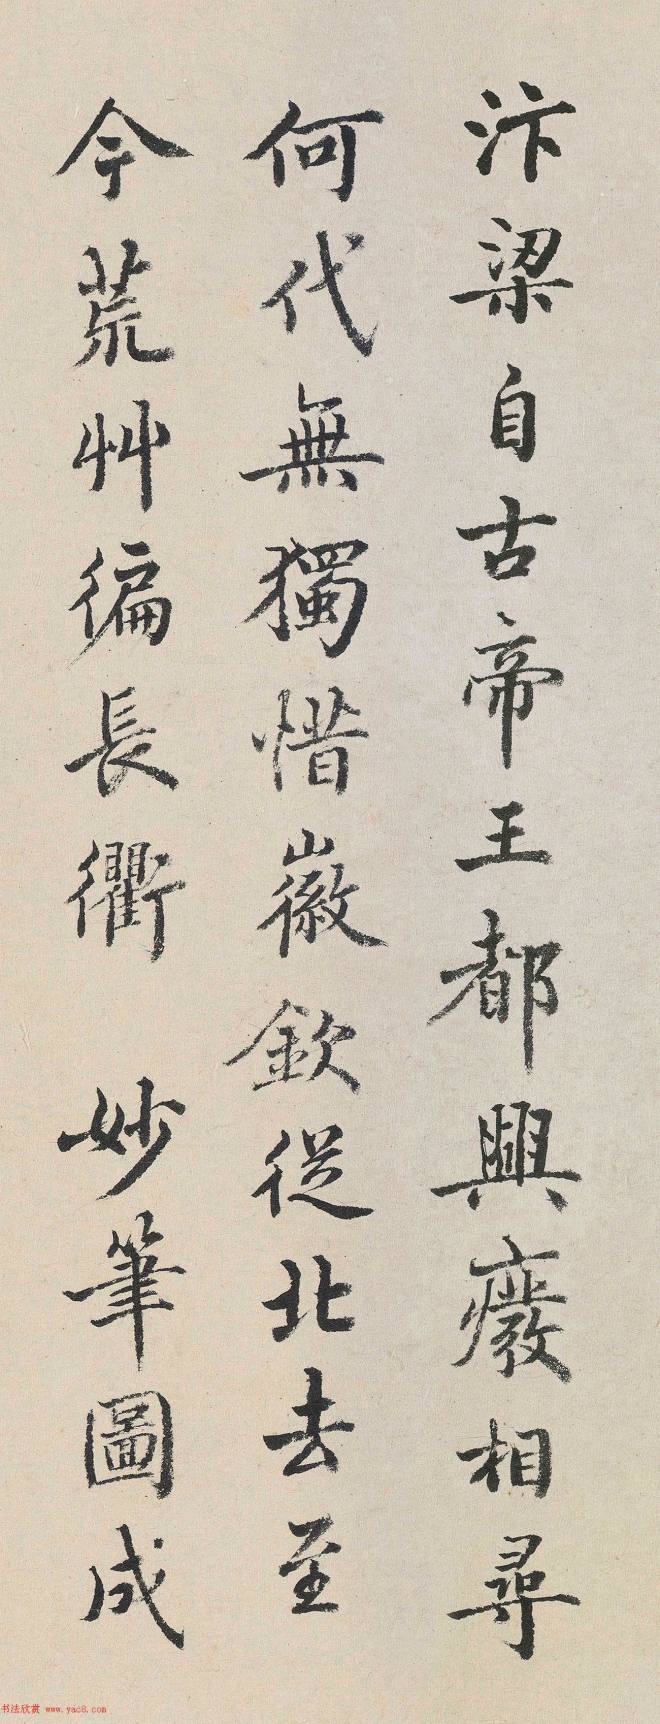 汴梁自古帝王都興癈相尋
何代無獨惜徽欽從北去至
今荒艸徧長衢 妙筆圖成
书法欣赏 www.yac8.com